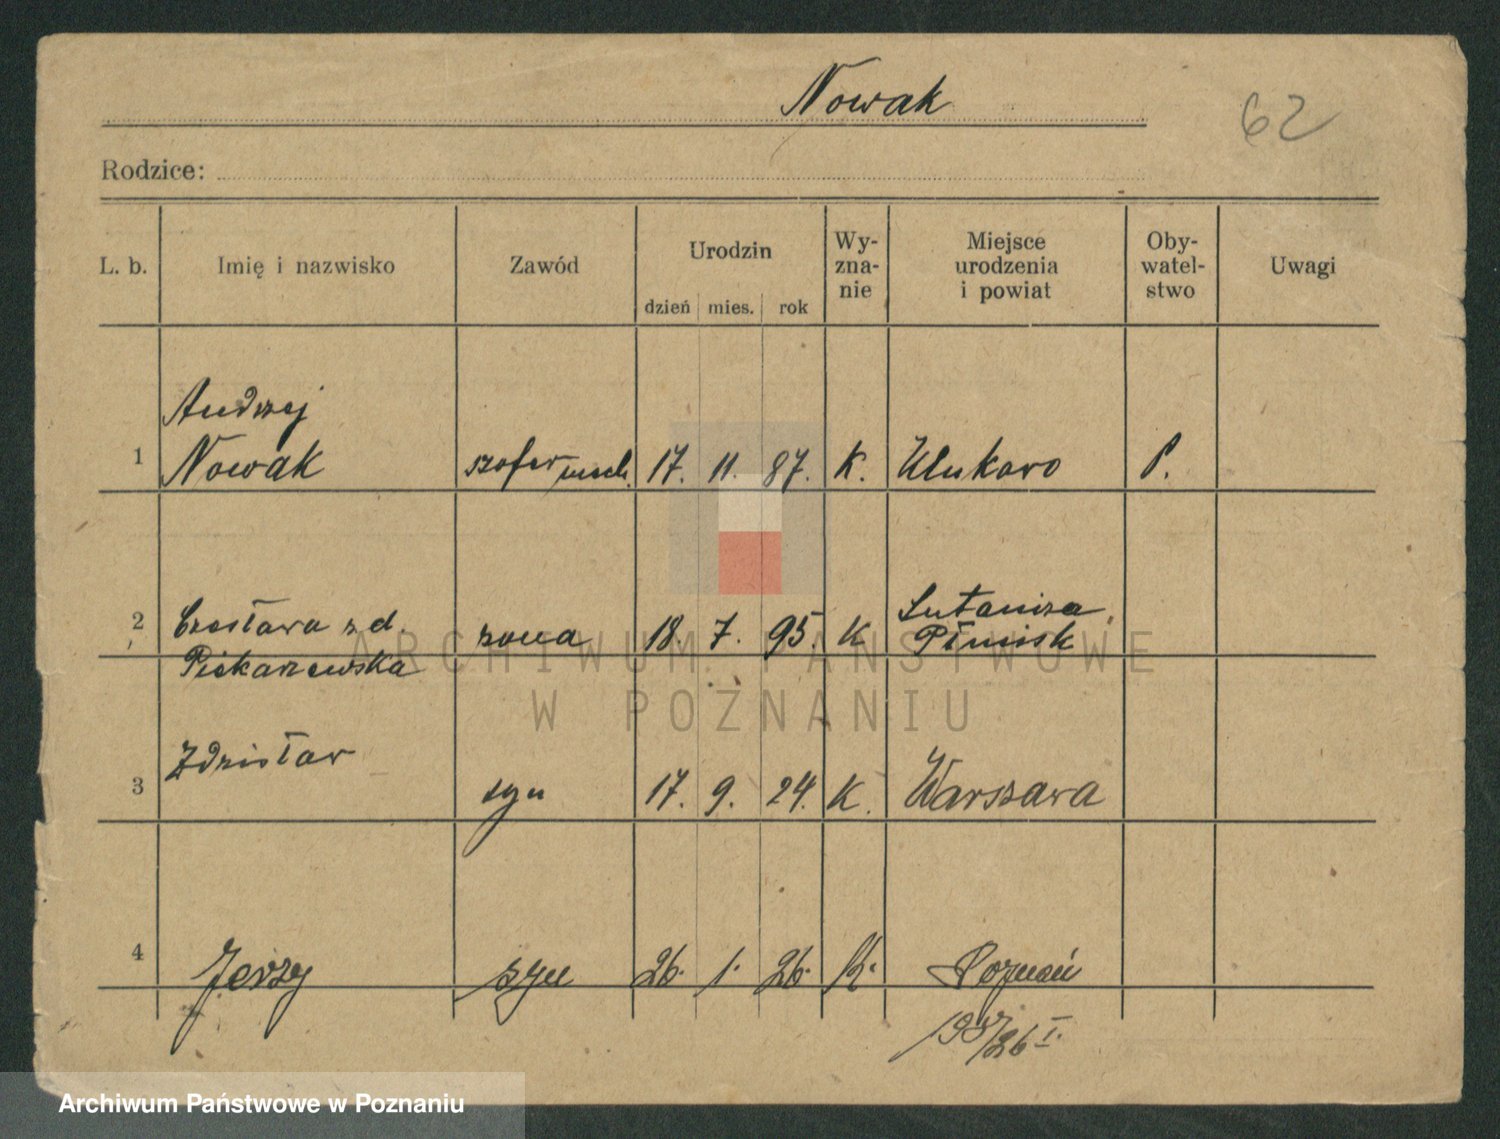 Nowak
62
Rodzice:
L. b. Imię i nazwisko Zawód Urodzin Wy- Miejsce Oby- Uwagi
zna- urodzenia watel-
nie i powiat stwo
dzień mies. rok
Andrzej
1 Nowak szofer mech. 17. 11. 87. K. P.
2 Czesława z d. żona 18. 7. 95. K
Piekarzewska
Zdzisław
3 syn 17. 9. 24. K. Warszawa
4 Jerzy syn 26. 1. 26. K. Poznań
ARCHIWUM PAŃSTWOWE
W POZNANIU
Archiwum Państwowe w Poznaniu